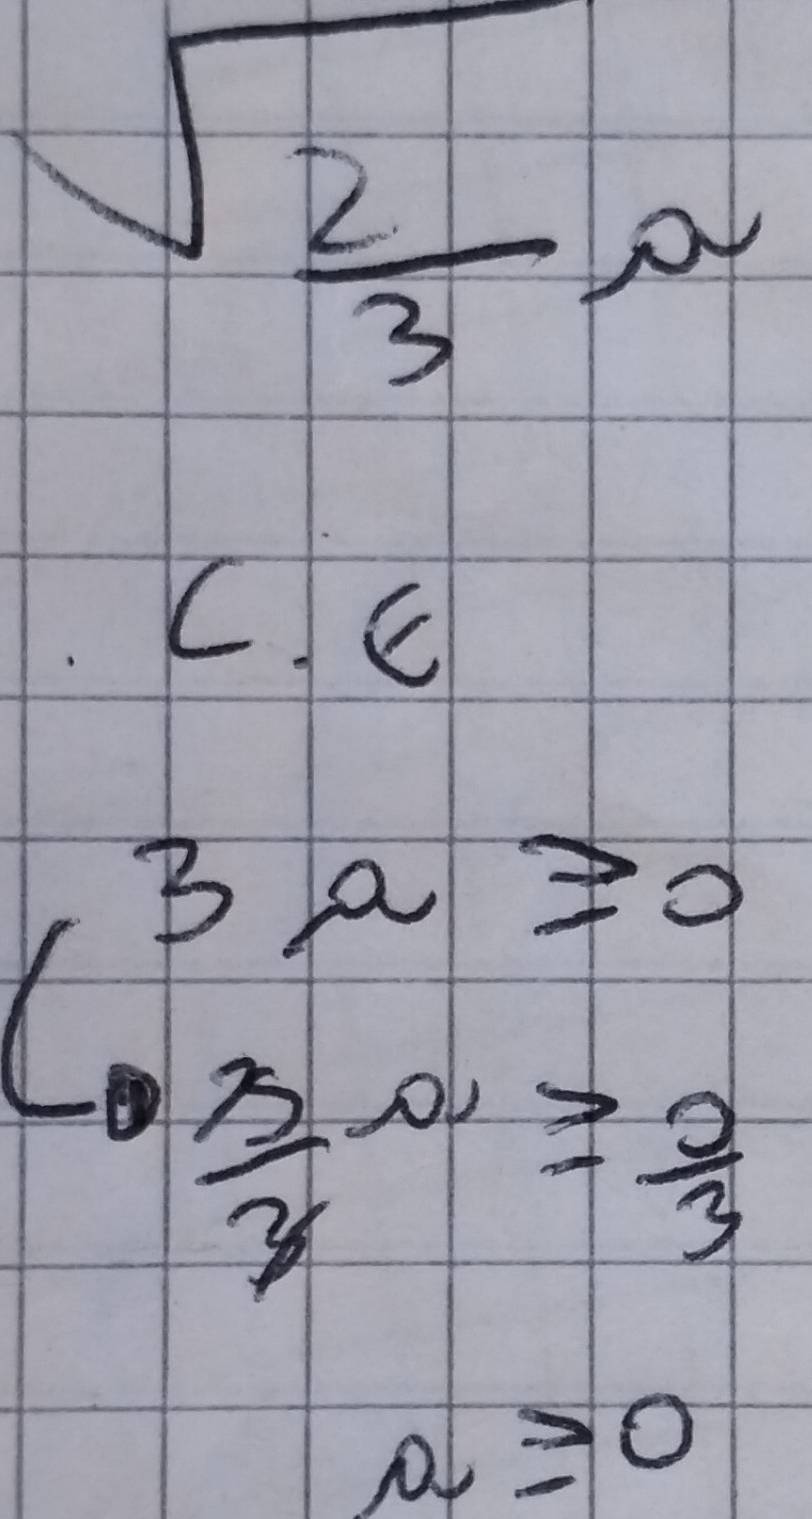 √ 2/3 a
C.E
3a ≥ 0
3/3 a ≥ 0/3
a ≥ 0